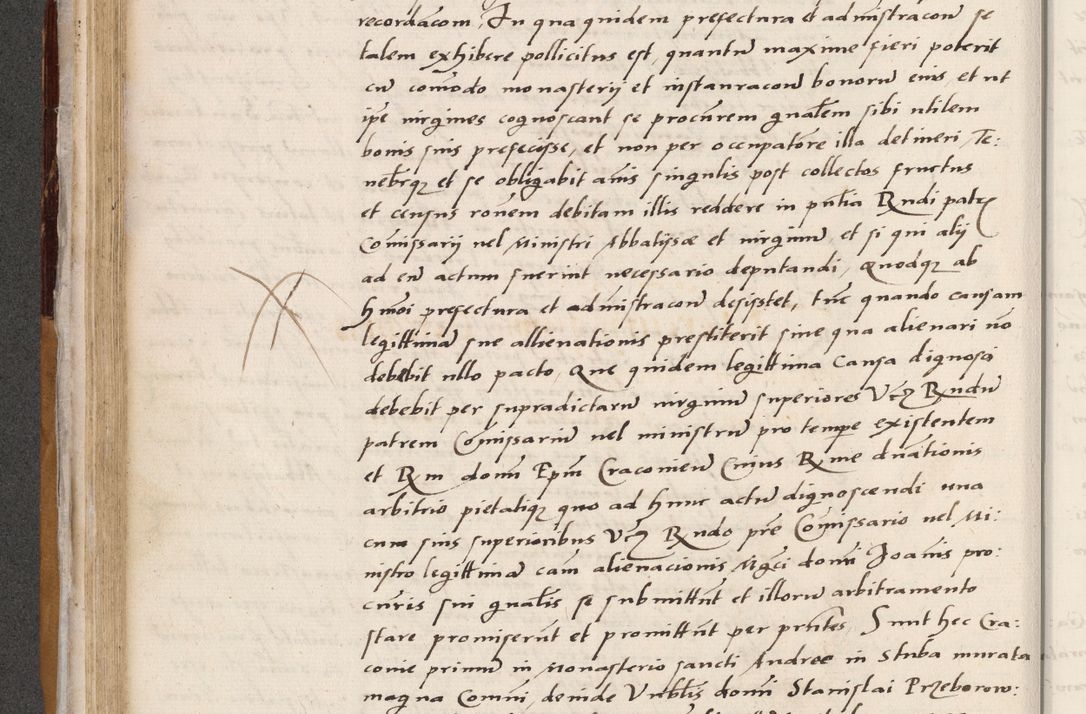 recordacom, In qua quidem prefectura et administracone se
talem exhibere pollicitus est, quantu maxime fieri poterit
cu comodo monasterij et instauracone bonoru eius, et ut
ipe virgines cognoscant se procurem gnalem sibi utilem
bonis suis prefecisse, et non per occupatore illa detineri, Te:
nebrqz et se obligabit anis singulis post collectos fructus
et census ronem debitam illis reddere in pntia Rndi patris
Comissarij vel Ministri Abbatissæ et virginu, et si qui alij
ad eu actum fuerint necessario deputandi, Quodqz ab
hmoi prefectura et administracone desistet, tuc quando causam
legittima sue allienationis prestiterit sine qua alienari no
debebit ullo pacto, Que quidem legittima causa dignosci
debebit per supradictaru virginu superiores Vcz Rndu
patrem Comissariu vel ministru pro tempe existentem
et Rm domi Epm Cracovien Cuius Rme dnationis
arbitrio pietatiqz quo ad hunc actu dignoscendi una
cum suis superioribus Vcz Rndo pre Comissario vel Mi:
nistro legittima cam alienacionis Mgci domi Joanis pro:
curis sui gnalis se submittut et illoru arbitramento
stare promiserut et promittut per pntes, Sunt hec Cra:
covie primu in Monasterio sancti Andree in Stuba murata
magna Comni, deinde Vnblis domi Stanislai Przeborow: